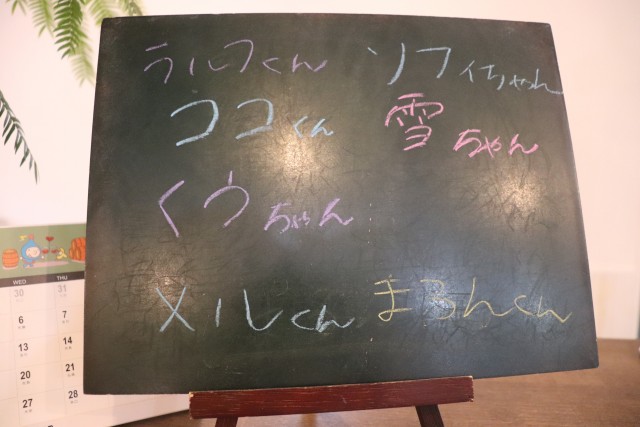 ラルフくん ソフィちゃん
ココくん 雪ちゃん
くうちゃん
メルくん まろんくん
WED THU
30 31
6 7
13 14
20 21
27 28